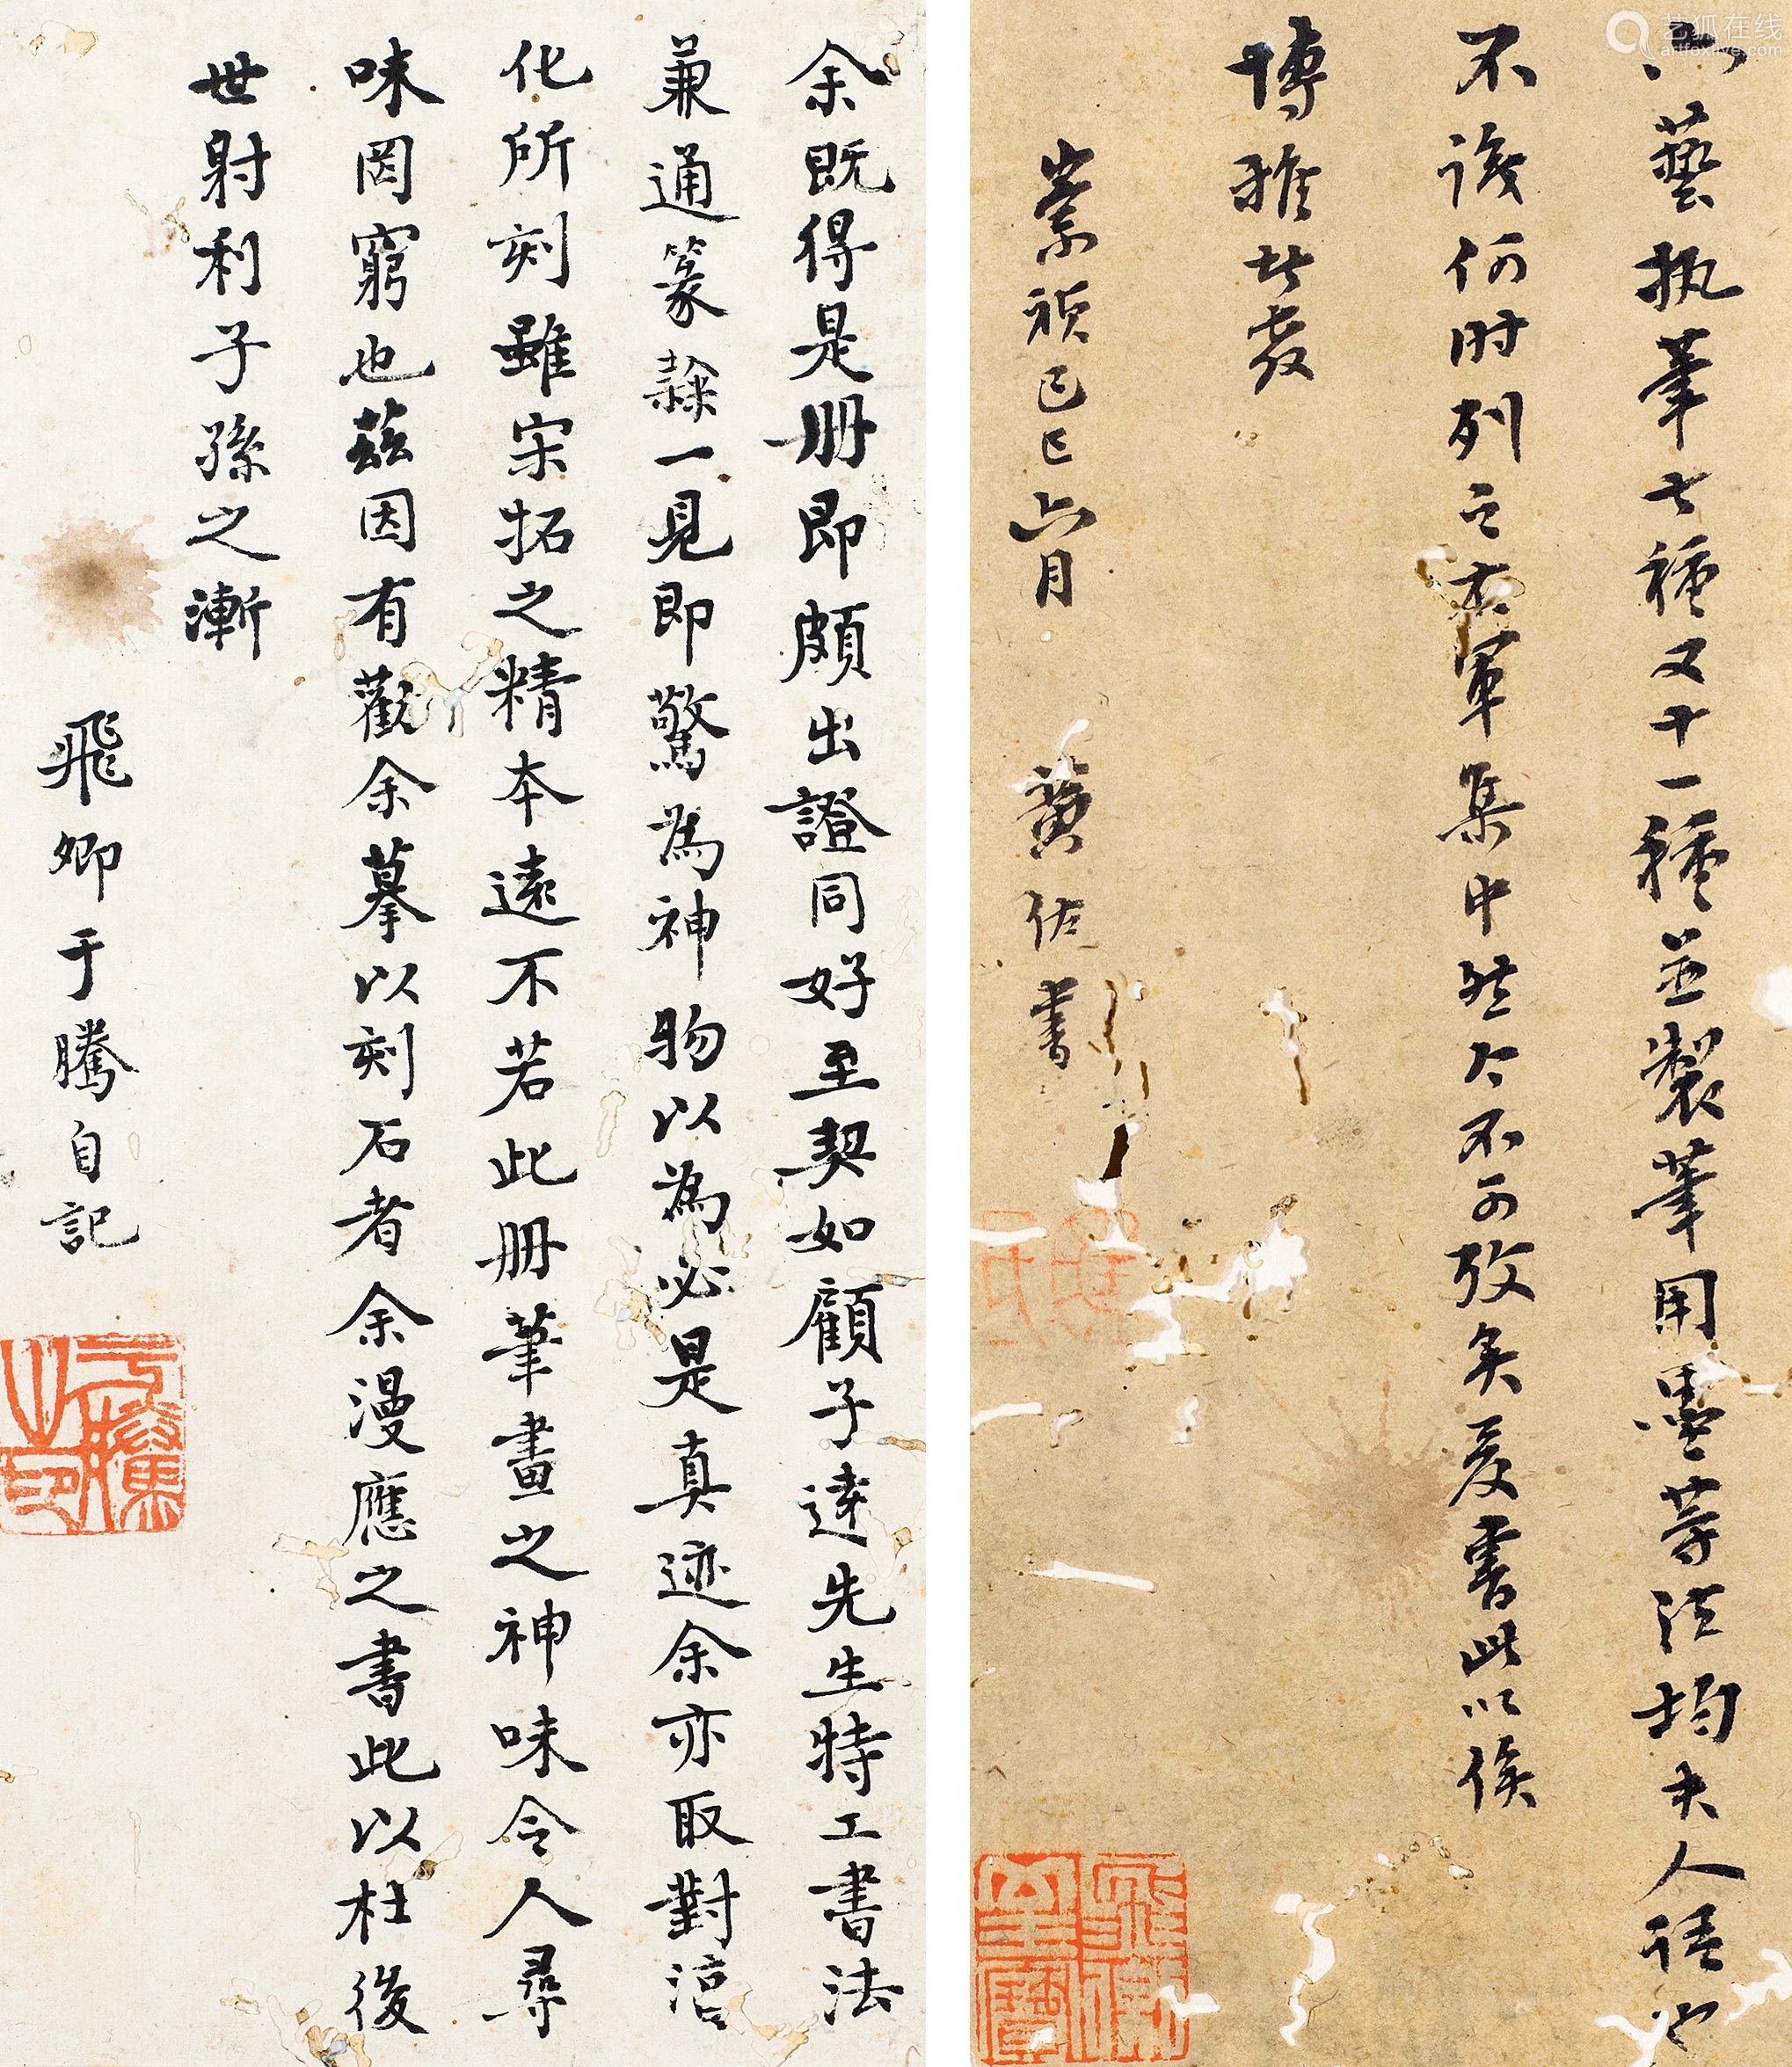 藝執筆七種又十一種並製筆用墨等法均夫人語也
不識何時列之右軍集中然今不可攷矣爰書此以俟
博雅者
崇禎己巳六月 黃佐書
余既得是册即頗出證同好至契如顧子達先生特工書法
兼通篆隸一見即驚為神物以為必是真迹余亦取對淳
化所刻雖宋拓之精本遠不若此冊筆畫之神味令人尋
味罔窮也茲因有勸余摹以刻石者余漫應之書此以杜後
世射利子孫之漸
飛卿于騰自記
于騰之印
艺狐在线
artfoxlive.com